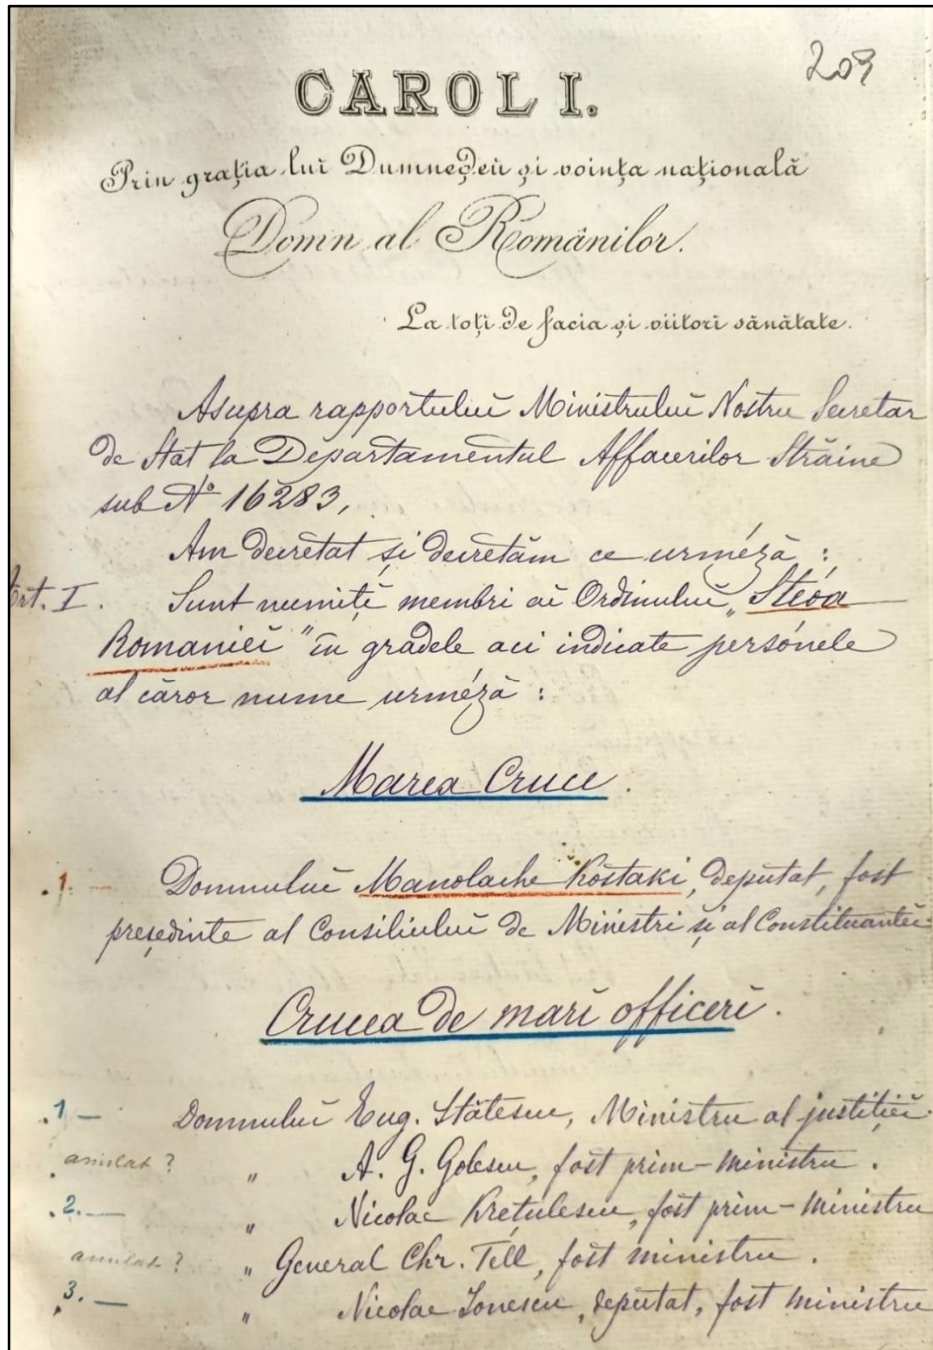 209
CAROL I.
Prin grația lui Dumneḑeŭ și voința națională
Domn al Românilor.
La toți de facia și viitorĭ sănătate.
Asupra rapportuluĭ Ministruluĭ Nostru Secretar
de Stat la Departamentul Affacerilor Străine
sub Nº 16283,
Am decretat și decretăm ce urméză :
Art. I. Sunt numițĭ membri aĭ Ordinuluĭ „Steóa
Romanieĭ" în gradele aci indicate persónele
al căror nume urméză :
Marea Cruce.
.1. — Domnuluĭ Manolache Kostaki, deputat, fost
președinte al Consiliuluĭ de Miniștri și al Constituanteĭ.
Crucea de marĭ officerĭ.
.1 — Domnuluĭ Eug. Stătescu, Ministru al justițieĭ
anulat ? „ A. G. Golescu, fost prim-ministru.
.2. — „ Nicolae Krețulescu, fost prim-ministru
anulat ? „ General Chr. Tell, fost ministru.
3. — „ Nicolae Ionescu, deputat, fost ministru